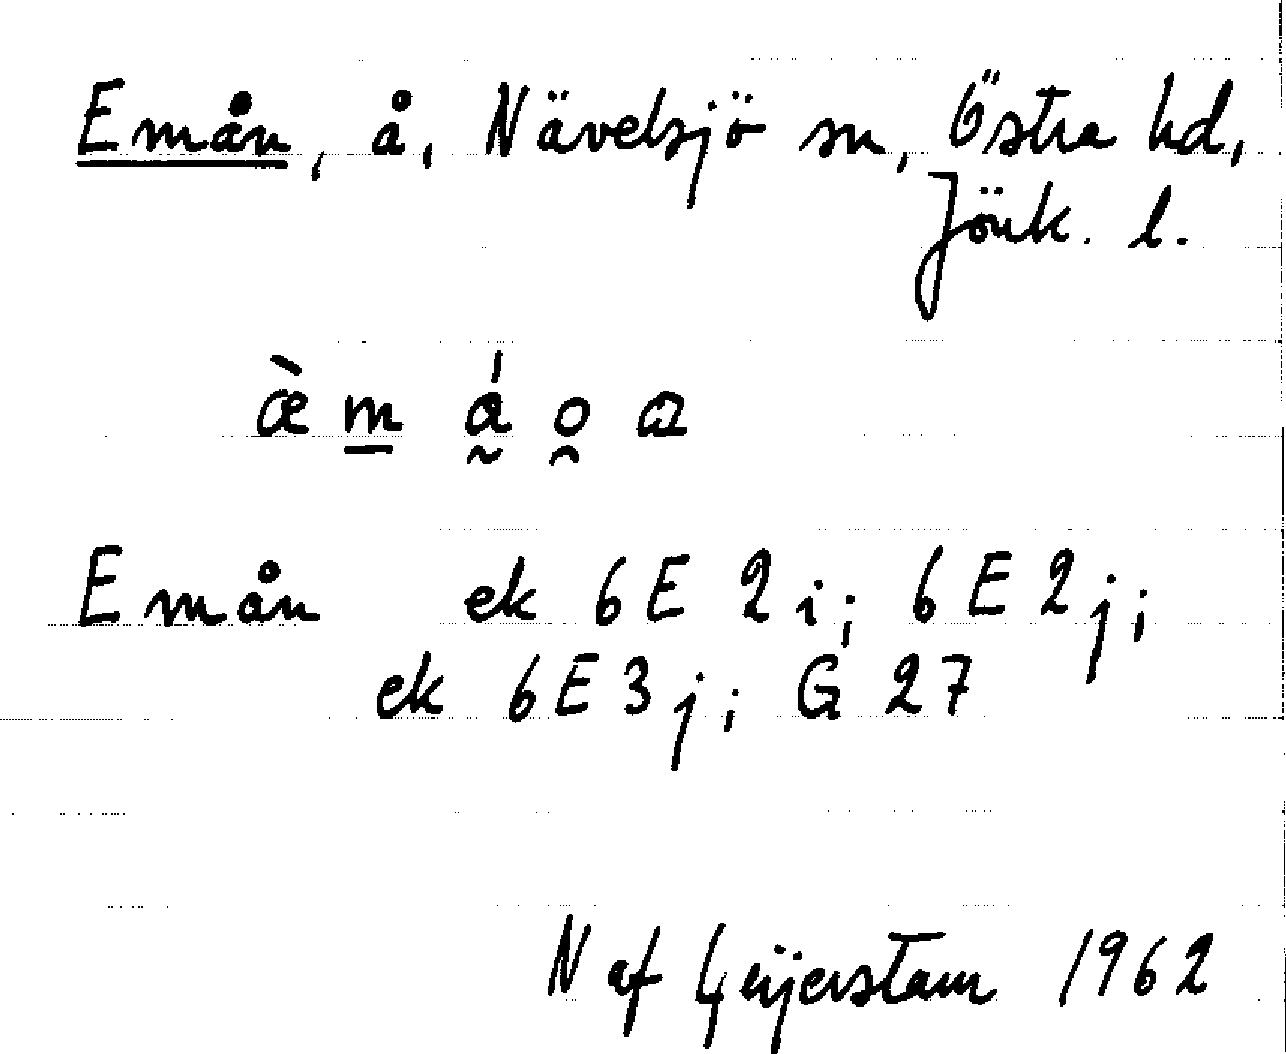 Emån, å, Nävelsjö sn, Östra hd,
Jönk. l.
æ̀ m̠ á̰ o̯ ɷ
Emån ek 6E 2i; 6E 2j;
ek 6E 3j; G 27
N af Geijerstam 1962